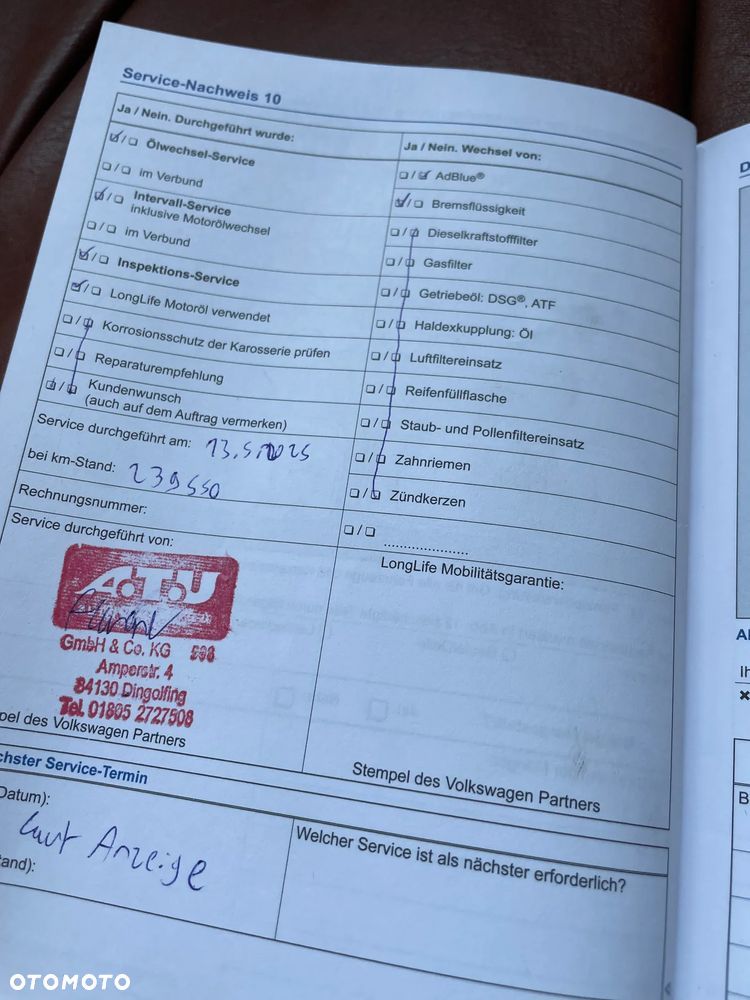 Service-Nachweis 10
Ja / Nein. Durchgeführt wurde:
☑/☐ Ölwechsel-Service
☐/☐ im Verbund
☑/☐ Intervall-Service
inklusive Motorölwechsel
☐/☐ im Verbund
☑/☐ Inspektions-Service
☑/☐ LongLife Motoröl verwendet
☐/☐ Korrosionsschutz der Karosserie prüfen
☐/☐ Reparaturempfehlung
☐/☐ Kundenwunsch
(auch auf dem Auftrag vermerken)
Service durchgeführt am: 13.5.2025
bei km-Stand: 239550
Rechnungsnummer:
Service durchgeführt von:
A.T.U
GmbH & Co. KG
Amperstr. 4
84130 Dingolfing
Tel. 01805 2727508
pel des Volkswagen Partners
Ja / Nein. Wechsel von:
☐/☑ AdBlue®
☑/☐ Bremsflüssigkeit
☐/☐ Dieselkraftstofffilter
☐/☐ Gasfilter
☐/☐ Getriebeöl: DSG®, ATF
☐/☐ Haldexkupplung: Öl
☐/☐ Luftfiltereinsatz
☐/☐ Reifenfüllflasche
☐/☐ Staub- und Pollenfiltereinsatz
☐/☐ Zahnriemen
☐/☐ Zündkerzen
☐/☐ .....................
LongLife Mobilitätsgarantie:
Stempel des Volkswagen Partners
chster Service-Termin
Datum):
Laut Anzeige
tand):
Welcher Service ist als nächster erforderlich?
OTOMOTO